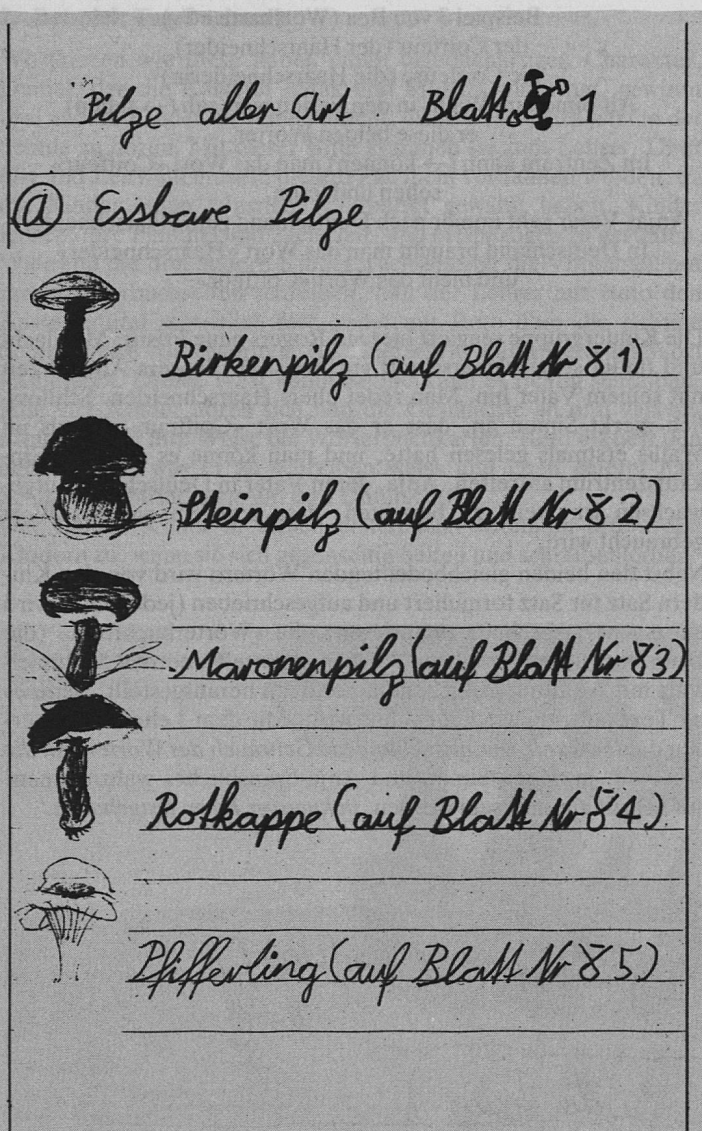 Pilze aller Art Blatt 1
ⓐ Essbare Pilze
Birkenpilz (auf Blatt Nr 81)
Steinpilz (auf Blatt Nr 82)
Maronenpilz (auf Blatt Nr 83)
Rotkappe (auf Blatt Nr 84)
Pfifferling (auf Blatt Nr 85)